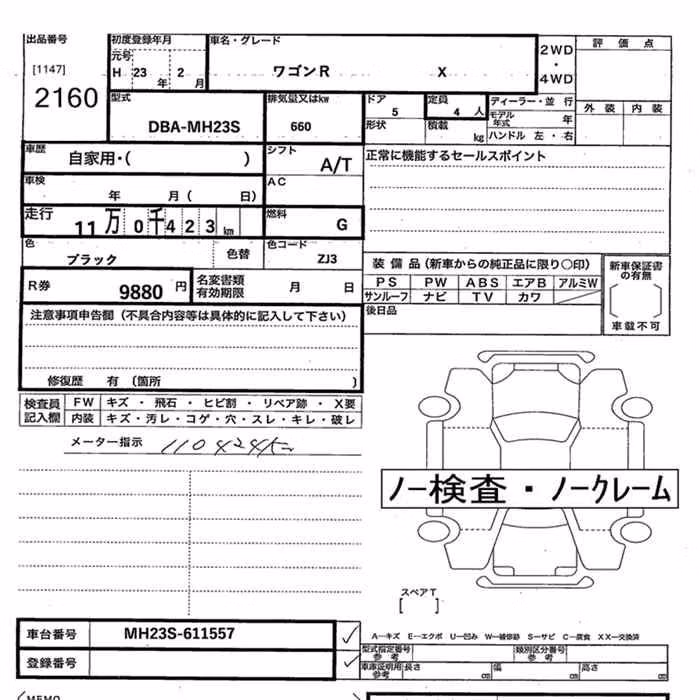 出品番号 初度登録年月 車名・グレード 2WD 評価点
[1147] 元号 ・
H 23年 2月 ワゴンR X 4WD
2160 外装 内装
型式 排気量又はkw ドア 定員 ディーラー・並行
5 4人 モデル年式 年
DBA-MH23S 660 形状 積載 kg ハンドル 左・右
車歴 シフト 正常に機能するセールスポイント
自家用・( ) A/T
車検 AC
年 月( 日)
走行 燃料
11万0千423km G
色 色替 色コード
ブラック ZJ3 装備品(新車からの純正品に限り○印) 新車保証書の有無
R券 名変書類有効期限 月 日 PS PW ABS エアB アルミW
9880円 サンルーフ ナビ TV カワ
後日品 車載不可
注意事項申告欄(不具合内容等は具体的に記入して下さい)
修復歴 有(箇所 )
検査員 FW キズ・飛石・ヒビ割・リペア跡・X要
記入欄 内装 キズ・汚レ・コゲ・穴・スレ・キレ・破レ
メーター指示 110424
ノー検査・ノークレーム
スペアT
[ ]
車台番号 MH23S-611557 ✓ A―キズ E―エクボ U―凹み W―補修跡 S―サビ C―腐食 XX―交換済
型式指定番号参考 類別区分番号参考
登録番号 ✓ 車庫証明用参考 長さ cm 幅 cm 高さ cm
MEMO